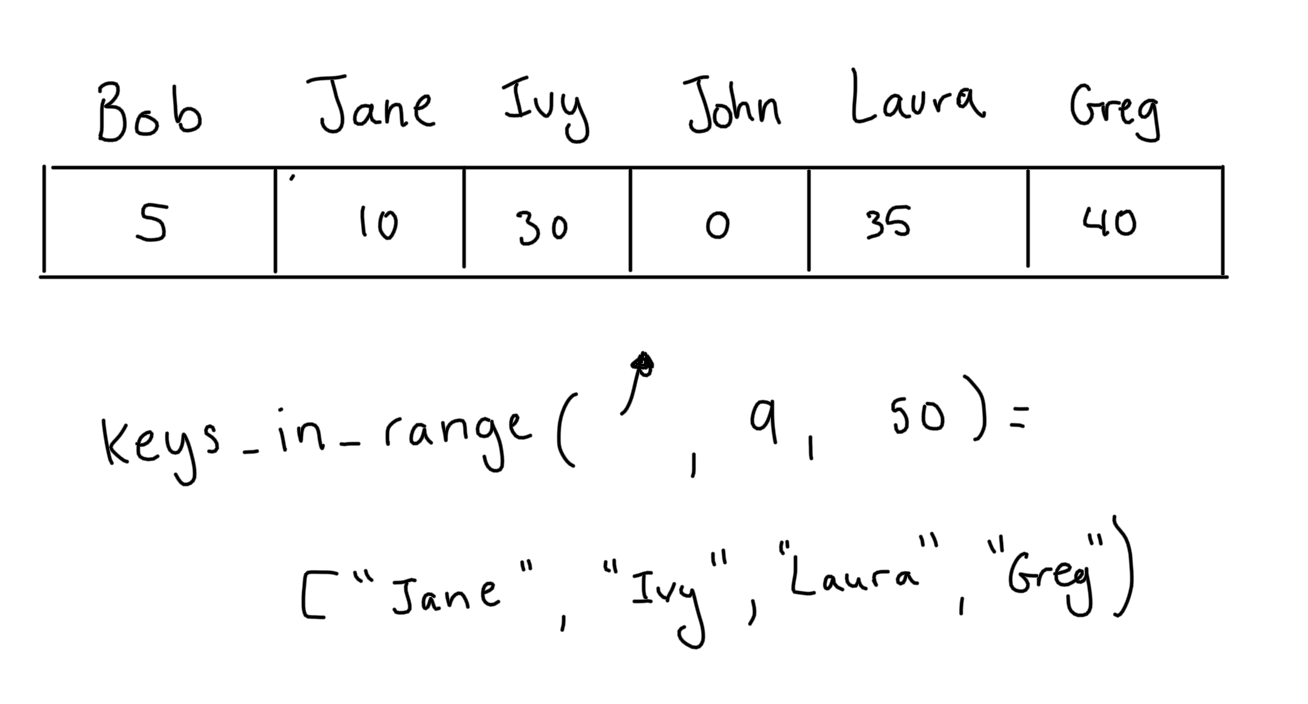 Bob Jane Ivy John Laura Greg
5 10 30 0 35 40
keys_in_range( , 9, 50) =
["Jane", "Ivy", "Laura", "Greg")